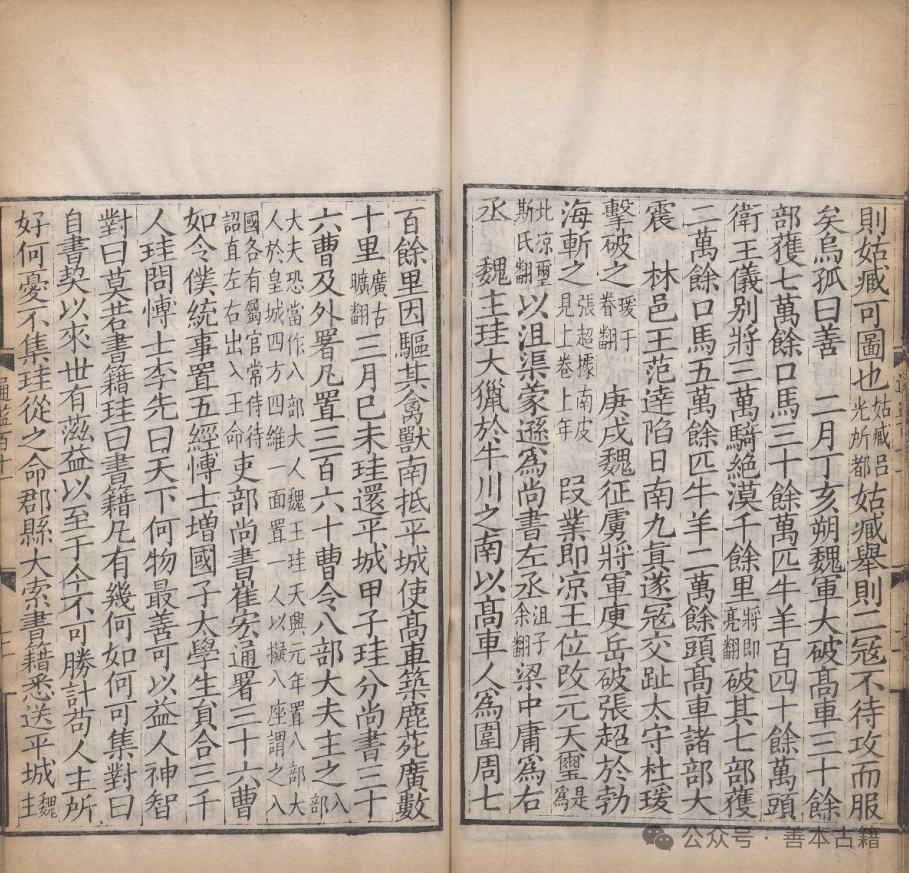 則姑臧可圖也姑臧呂光所都姑臧舉則二冦不待攻而服
矣烏孤曰善　二月丁亥朔魏軍大破高車三十餘
部獲七萬餘口馬三十餘萬匹牛羊百四十餘萬頭
衛王儀別將三萬騎絶漠千餘里將即亮翻破其七部獲
二萬餘口馬五萬餘匹牛羊二萬餘頭高車諸部大
震　林邑王范逹陷日南九真遂冦交趾太守杜瑗
擊破之瑗于眷翻　庚戌魏征虜將軍庾岳破張超於勃
海斬之張超據南皮見上卷上年　段業即凉王位改元天璽是爲
北凉璽斯氏翻以沮渠蒙遜爲尚書左丞沮子余翻梁中庸爲右
丞　魏主珪大獵於牛川之南以高車人爲圍周七
百餘里因驅其禽獸南抵平城使高車築鹿苑廣數
十里廣古曠翻三月己未珪還平城甲子珪分尚書三十
六曹及外署凡置三百六十曹令八部大夫主之八部
大夫恐當作八部大人魏王珪天興元年置八部大人於皇城四方四維面置一人以擬八座謂之八
國各有屬官常侍待詔直左右出入王命吏部尚書崔宏通署三十六曹
如令僕統事置五經愽士増國子大學生負合三千
人珪問愽士李先曰天下何物最善可以益人神智
對曰莫若書籍珪曰書籍凡有幾何如何可集對曰
自書契以來世有滋益以至于今不可勝計苟人主所
好何憂不集珪從之命郡縣大索書籍悉送平城魏主
通鑑百十一
十一
公众号 · 善本古籍